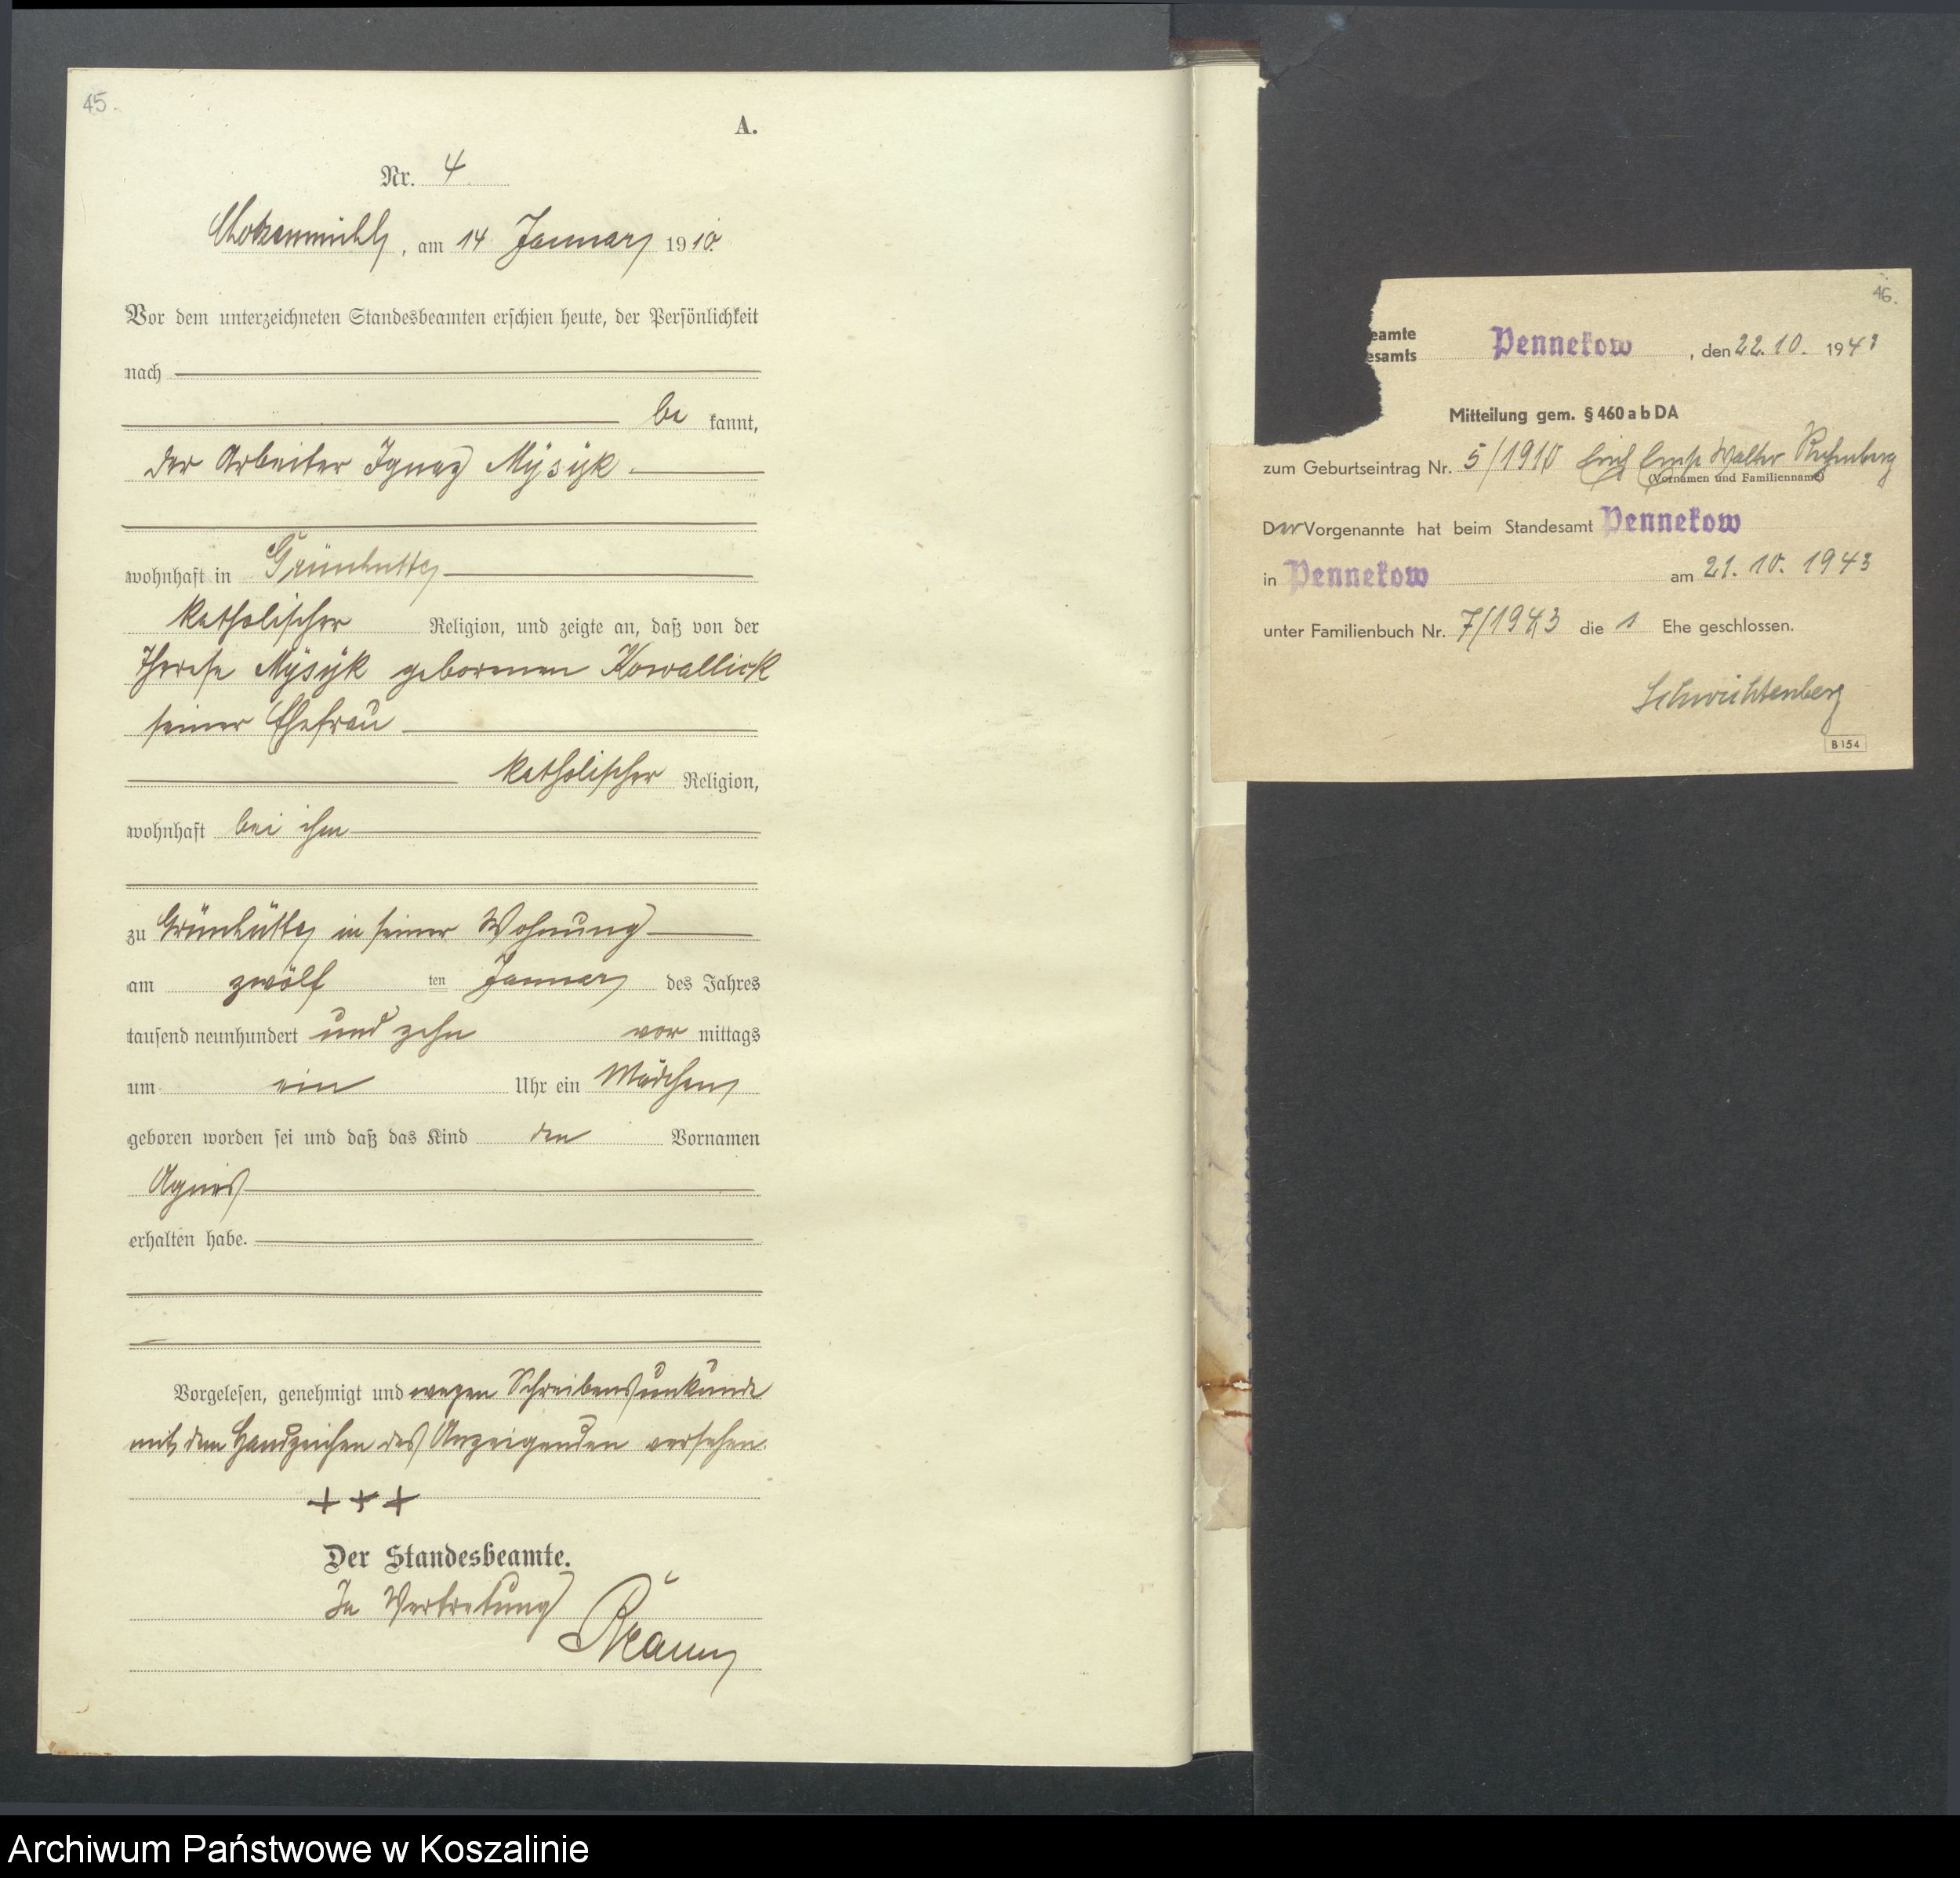 45.
A.
Nr. 4
Chotzenmühl, am 14 Januar 1910.
Vor dem unterzeichneten Standesbeamten erschien heute, der Persönlichkeit
nach
be kannt,
der Arbeiter Ignaz Mÿsÿk
wohnhaft in Grünhütte
katholischer Religion, und zeigte an, daß von der
Therese Mÿsÿk geborenen Kowallick
seiner Ehefrau
katholischer Religion,
wohnhaft bei ihm
zu Grünhütte in seiner Wohnung
am zwölf ten Januar des Jahres
tausend neunhundert und zehn vor mittags
um ein Uhr ein Mädchen
geboren worden sei und daß das Kind den Vornamen
Agnes
erhalten habe.
Vorgelesen, genehmigt und wegen Schreibensunkunde
mit dem Handzeichen des Anzeigenden versehen.
+++
Der Standesbeamte.
In Vertretung
46.
eamte
esamts Pennekow, den 22.10. 1943
Mitteilung gem. § 460 a b DA
zum Geburtseintrag Nr. 5/1910 Erich Ernst Walter
(Vornamen und Familienname)
Der Vorgenannte hat beim Standesamt Pennekow
in Pennekow am 21.10.1943
unter Familienbuch Nr. 7/1943 die 1 Ehe geschlossen.
Schwichtenberg
B 154
Archiwum Państwowe w Koszalinie